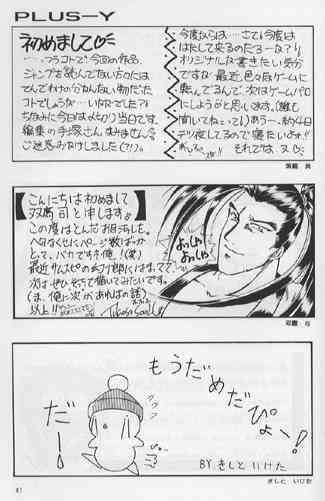 PLUS-Y
初めまして♡
……っつうコトで、今回の作品、
ジャンプを読んでない方には
てんでわけの分んない物だった
コトでしょうが…いかがでした?!
ちなみに今日は〆切り当日です。
編集の手塚さん、すみません。
ご迷惑おかけしました(?!)。
今度からは……さて、今度は
はたして来るのだろーな?!
オリジナルな書きたい気分
ですな 最近、色々なゲームに
転んでるんで、次はゲームパロ
にしようかと思います。(誰も
聞いてねぇっての)あうー、約4日
テツ夜してるので寝たいよお!!
それでは、又
【こんにちは初めまして
双嶋 司と申します。】
この度はとんだお目汚しを。
ヘタなくせにページ数ばっか
とって、バカですネ、俺!(笑)
最近サムスピの幻十郎にはまってて、
次はぜひそっちで描いてみたいです。
(ま、俺に次があればの話)
以上!!
よいしゃ
よいしゃ
もうだめだぴょー!
だーっ
ククク
BY きしと いけた
きしと いけた
81